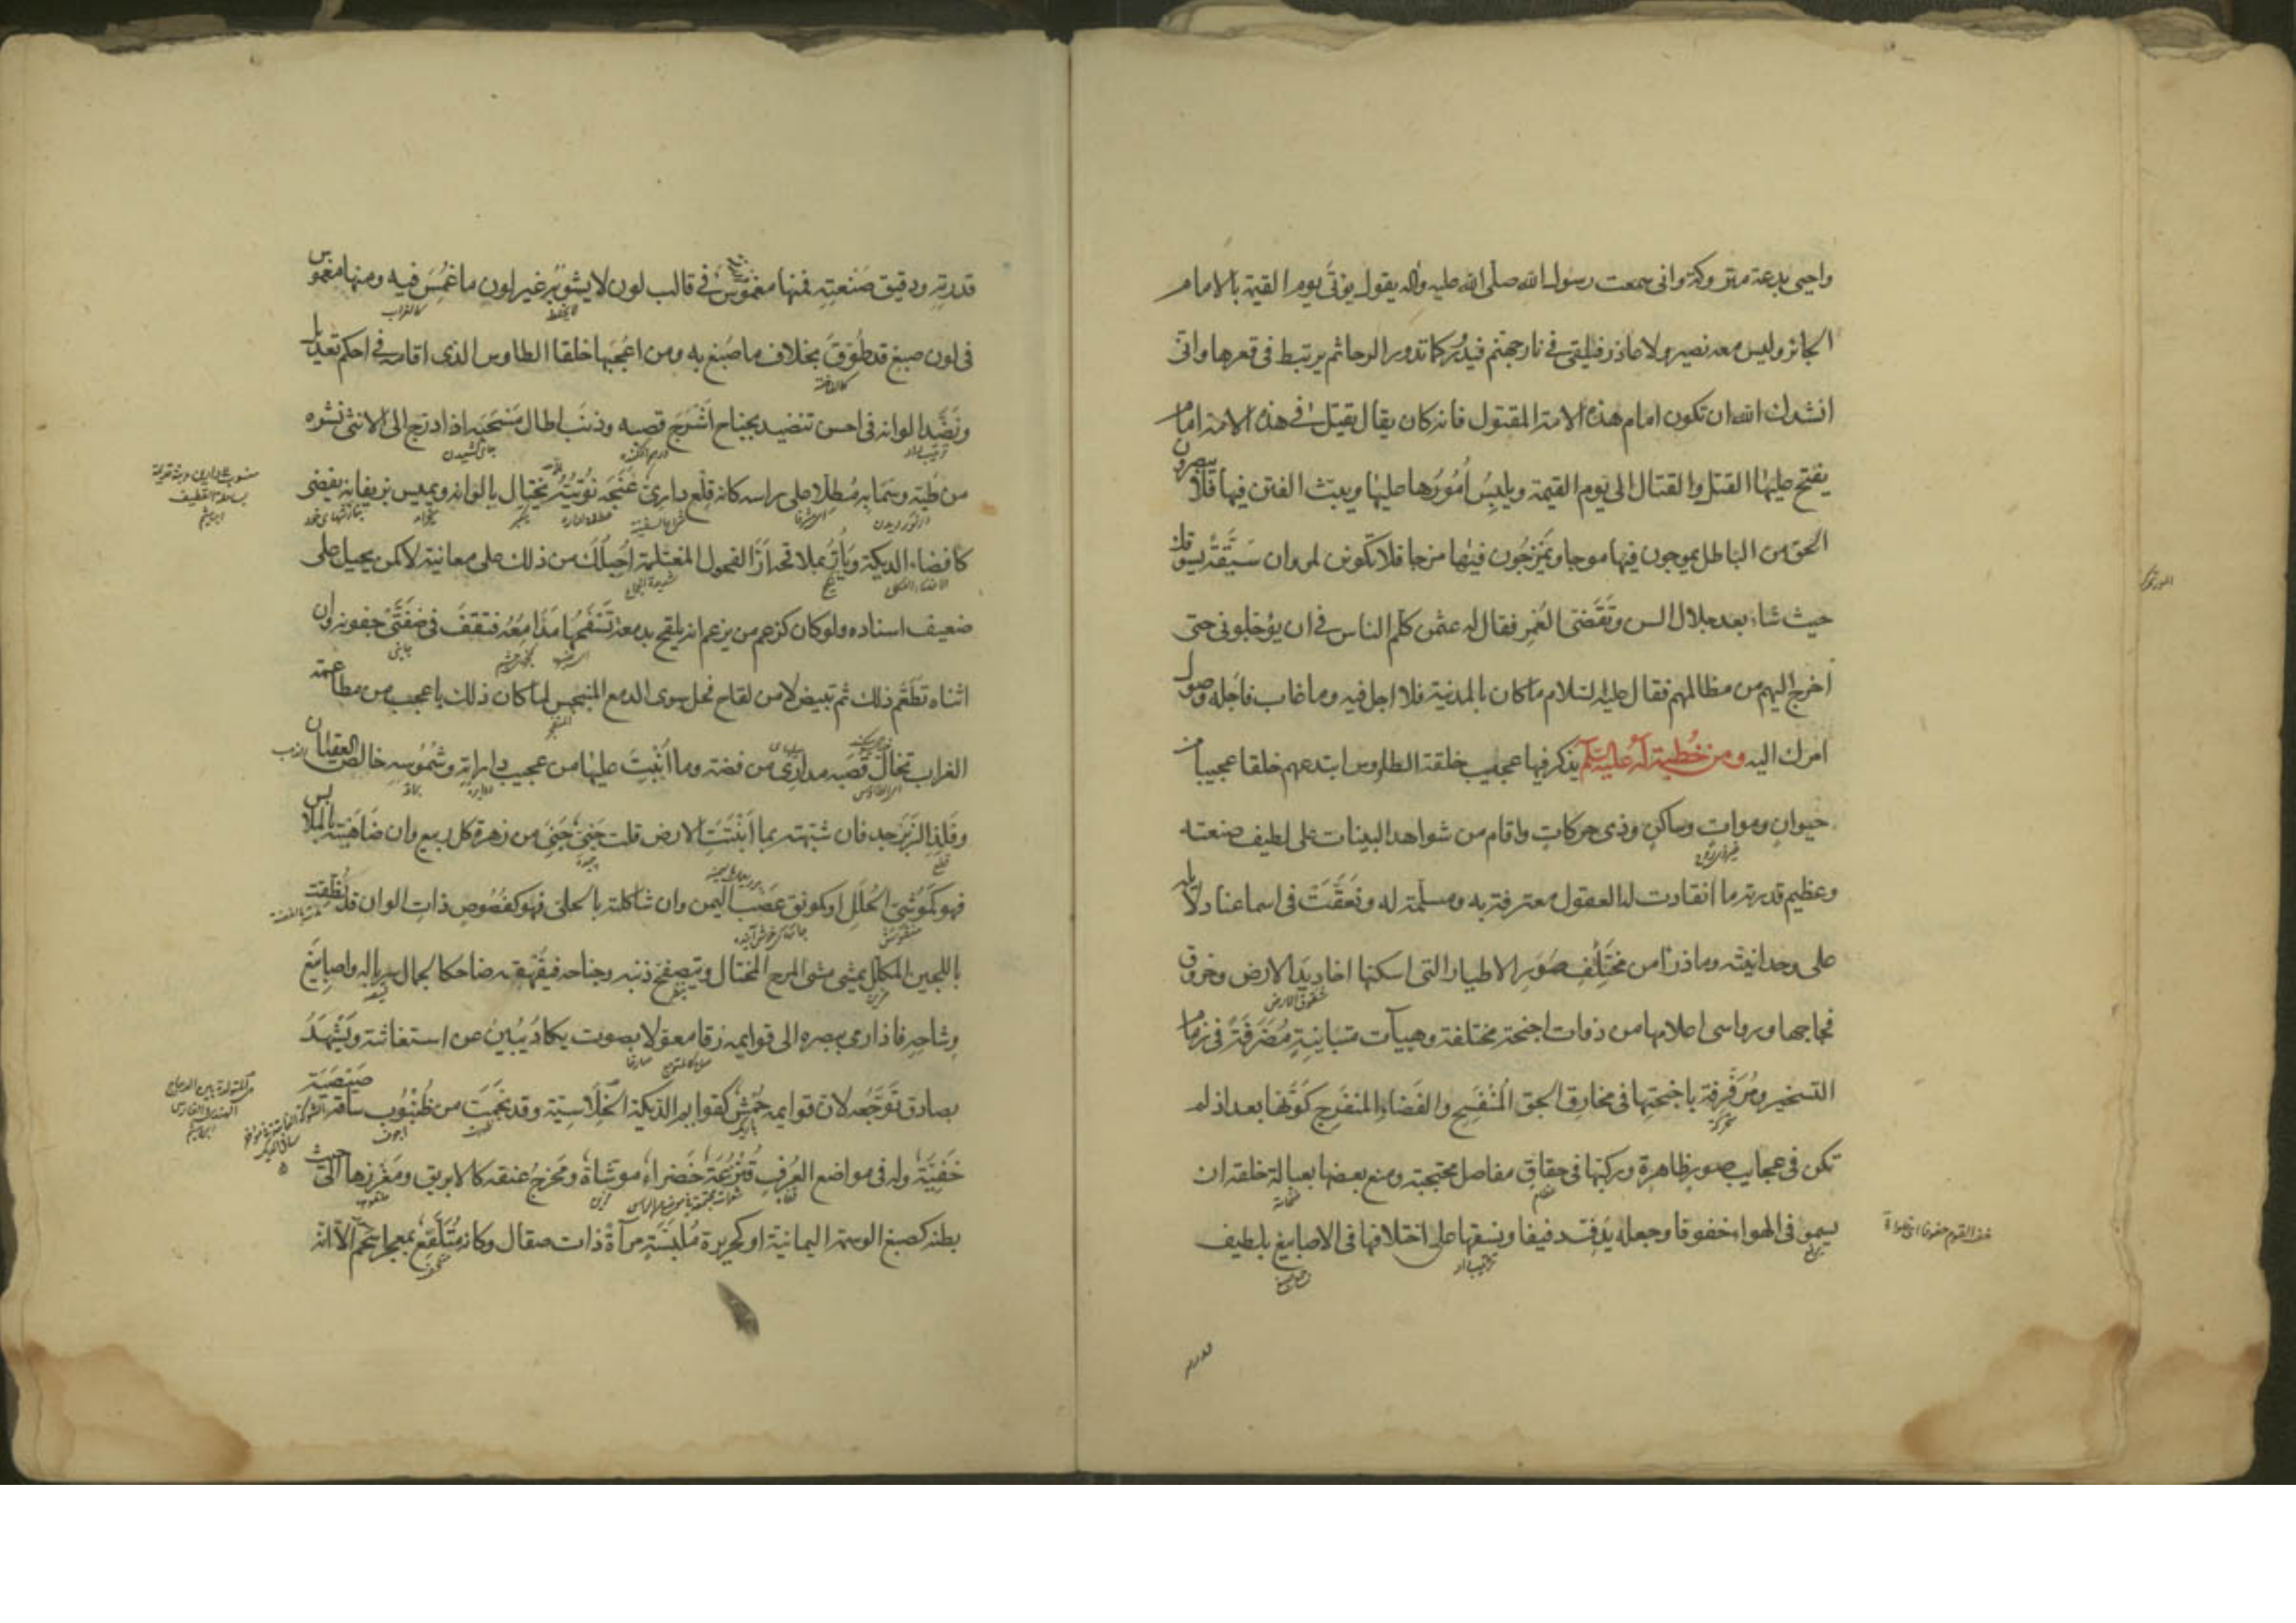 واحیی بدعة متروکة وانی سمعت رسول الله صلی الله علیه واله یقول یؤتی یوم القیمة بالامام
الجائر ولیس معه نصیر ولا عاذر فیلقی فی نار جهنم فیدور کما تدور الرحا ثم یرتبط فی قعرها وانی
انشدک الله ان تکون امام هذه الامة المقتول فانه کان یقال یقتل فی هذه الامة امام
یفتح علیها القتل والقتال الی یوم القیمة ویلبس امورها علیها ویبث الفتن فیها فلا یبصرون
الحق من الباطل یموجون فیها موجا ویمرجون فیها مرجا فلا تکونن لمروان سیقة یسوقک
حیث شاء بعد جلال السن وتقضی العمر فقال له عثمن کلم الناس فی ان یؤجلونی حتی
اخرج الیهم من مظالمهم فقال علیه السلام ما کان بالمدینة فلا اجل فیه وما غاب فاجله وصول
امرک الیه ومن خطبة له علیه السلم یذکر فیها عجیب خلقة الطاوس ابتدعهم خلقا عجیبا من
حیوان وموات وساکن وذی حرکات واقام من شواهد البینات علی لطیف صنعته
وعظیم قدرته ما انقادت له العقول معترفة به ومسلمة له ونعقت فی اسماعنا دلایله
علی وحدانیته وما ذرأ من مختلف صور الاطیار التی اسکنها اخادید الارض وخروق
شقوق الارض
فجاجها ورواسی اعلامها من ذوات اجنحة مختلفة وهیآت متباینة مصرفة فی زمام
التسخیر ومرفرفة باجنحتها فی مخارق الجو المنفسح والفضاء المنفرج کونها بعد اذ لم
تکن فی عجایب صور ظاهرة ورکبها فی حقاق مفاصل محتجبة ومنع بعضها بعبالة خلقه ان
یسمو فی الهواء خفوفا وجعله یدف دفیفا ونسقها علی اختلافها فی الاصابیغ بلطیف
قدرته
قدرته ودقیق صنعته فمنها مغموس فی قالب لون لا یشوبه غیر لون ما غمس فیه ومنها مغموس
کالغراب
فی لون صبغ قد طوق بخلاف ما صبغ به ومن اعجبها خلقا الطاوس الذی اقامه فی احکم تعدیل
کالفاختة
ونضد الوانه فی احسن تنضید بجناح اشرج قصبه وذنب اطال مسحبه اذا درج الی الانثی نشره
من طیه وسما به مطلا علی راسه کانه قلع داری عنجه نوتیه یختال بالوانه ویمیس بزیفانه یفضی
کافضاء الدیکة ویأر بملاقحه ار الفحول المغتلمة احیلک من ذلک علی معاینة لا کمن یحیل علی
ضعیف اسناده ولو کان کزعم من یزعم انه یلقح بدمعة تنسفحها مدامعه فتقف فی ضفتی جفونه وان
انثاه تطعم ذلک ثم تبیض لا من لقاح فحل سوی الدمع المنبجس لما کان ذلک باعجب من مطاعمة
الغراب تخال قصبه مداری من فضة وما انبت علیها من عجیب داراته وشموسه خالص العقیان
وفلذ الزبرجد فان شبهته بما انبتت الارض قلت جنی جنی من زهرة کل ربیع وان ضاهیته بالملابس
فهو کموشی الحلل او کمونق عصب الیمن وان شاکلته بالحلی فهو کفصوص ذات الوان قد نطقت
باللجین المکلل یمشی مشی المرح المختال ویتصفح ذنبه وجناحه فیقهقه ضاحکا لجمال سرباله واصابیغ
وشاحه فاذا رمی ببصره الی قوایمه زقا معولا بصوت یکاد یبین عن استغاثته ویشهد
بصادق توجعه لان قوایمه حمش کقوایم الدیکة الخلاسیة وقد نجمت من ظنبوب ساقه صیصیة
خفیة وله فی مواضع العرف قنزعة خضراء موشاة ومخرج عنقه کالابریق ومغرزها الی حیث
بطنه کصبغ الوسمة الیمانیة او کحریرة ملبسة مرآة ذات صقال وکانه متلفع بمعجر اسحم الا انه